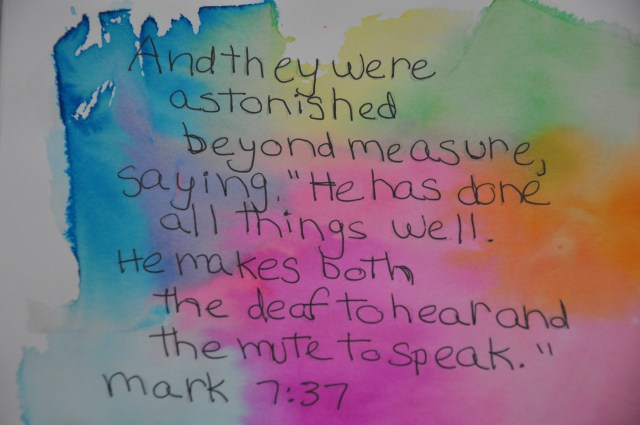 And they were
astonished
beyond measure,
saying, "He has done
all things well.
He makes both
the deaf to hear and
the mute to speak."
mark 7:37